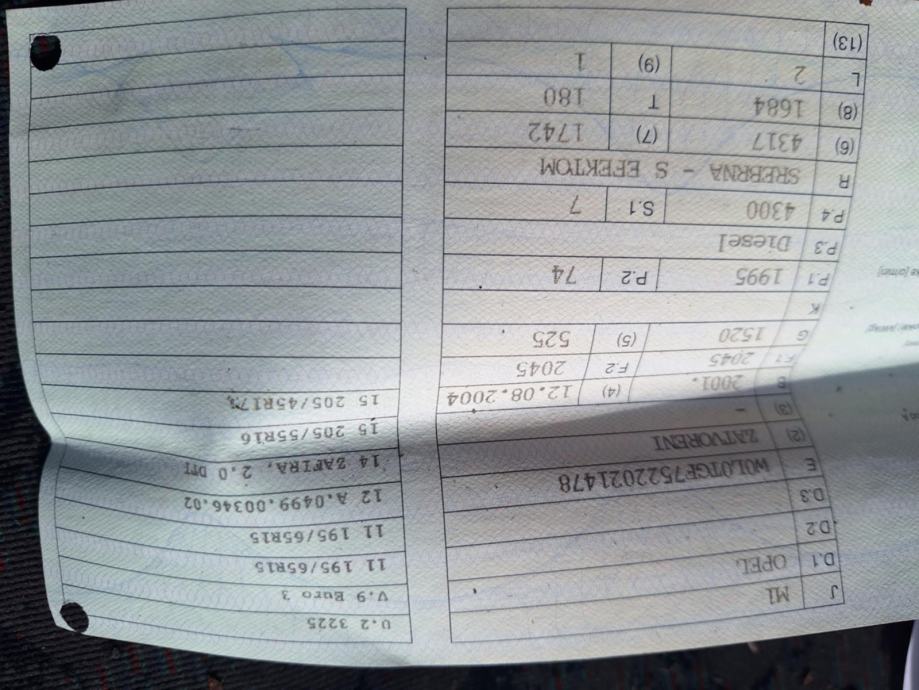 J M1
D.1 OPEL
D.2
D.3
E W0L0TGF7522021478
(2) ZATVORENI
(3) -
B 2001. (4) 12.08.2004
F.1 2045 F.2 2045
G 1520 (5) 525
K
P.1 1995 P.2 74
P.3 Diesel
P.4 4300 S.1 7
R SREBRNA - S EFEKTOM
(6) 4317 (7) 1742
(8) 1684 T 180
L 2 (9) 1
(13)
U.2 3225
V.9 Euro 3
11 195/65R15
11 195/65R15
12 A.0499.00346.02
14 ZAFIRA, 2.0 DTI
15 205/55R16
15 205/45R17